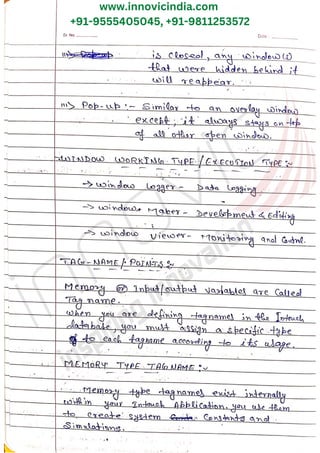 www.innovicindia.com
+91-9555405045, +91-9811253572
Sr. No. Date
is closed, any window(s)
that were hidden behind it
will reappear.
iii) Pop-up :- Similar to an overlay window
except, it always stays on top
of all other open window.
WINDOW WORKING TYPE / EXECUSION TYPE :-
→ window logger - Data logging.
→ window Maker - Development & Editing
→ window viewer - Monitoring and Control.
TAG-NAME/POINTS :-
Memory or Input/output variables are called
Tag name.
When you are defining tagnames in the Intouch
database, you must assign a specific type
to each tagname according to its usage.
MEMORY TYPE TAGNAME :-
Memory type tagnames exist internally
within your Intouch Application. you use them
to create system Constants and
Simulations.